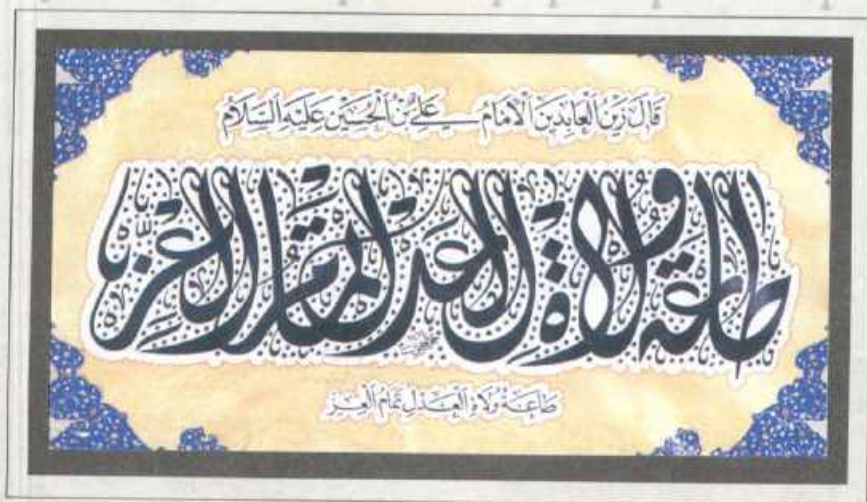 قَالَ زَيْنُ الْعَابِدِينَ الْاِمَامُ عَلِيُّ بْنُ الْحُسَيْنِ عَلَيْهِ السَّلَامُ
طاعة ولاة العدل تمام العز
طَاعَةُ وُلَاةِ الْعَدْلِ تَمَامُ الْعِزِّ